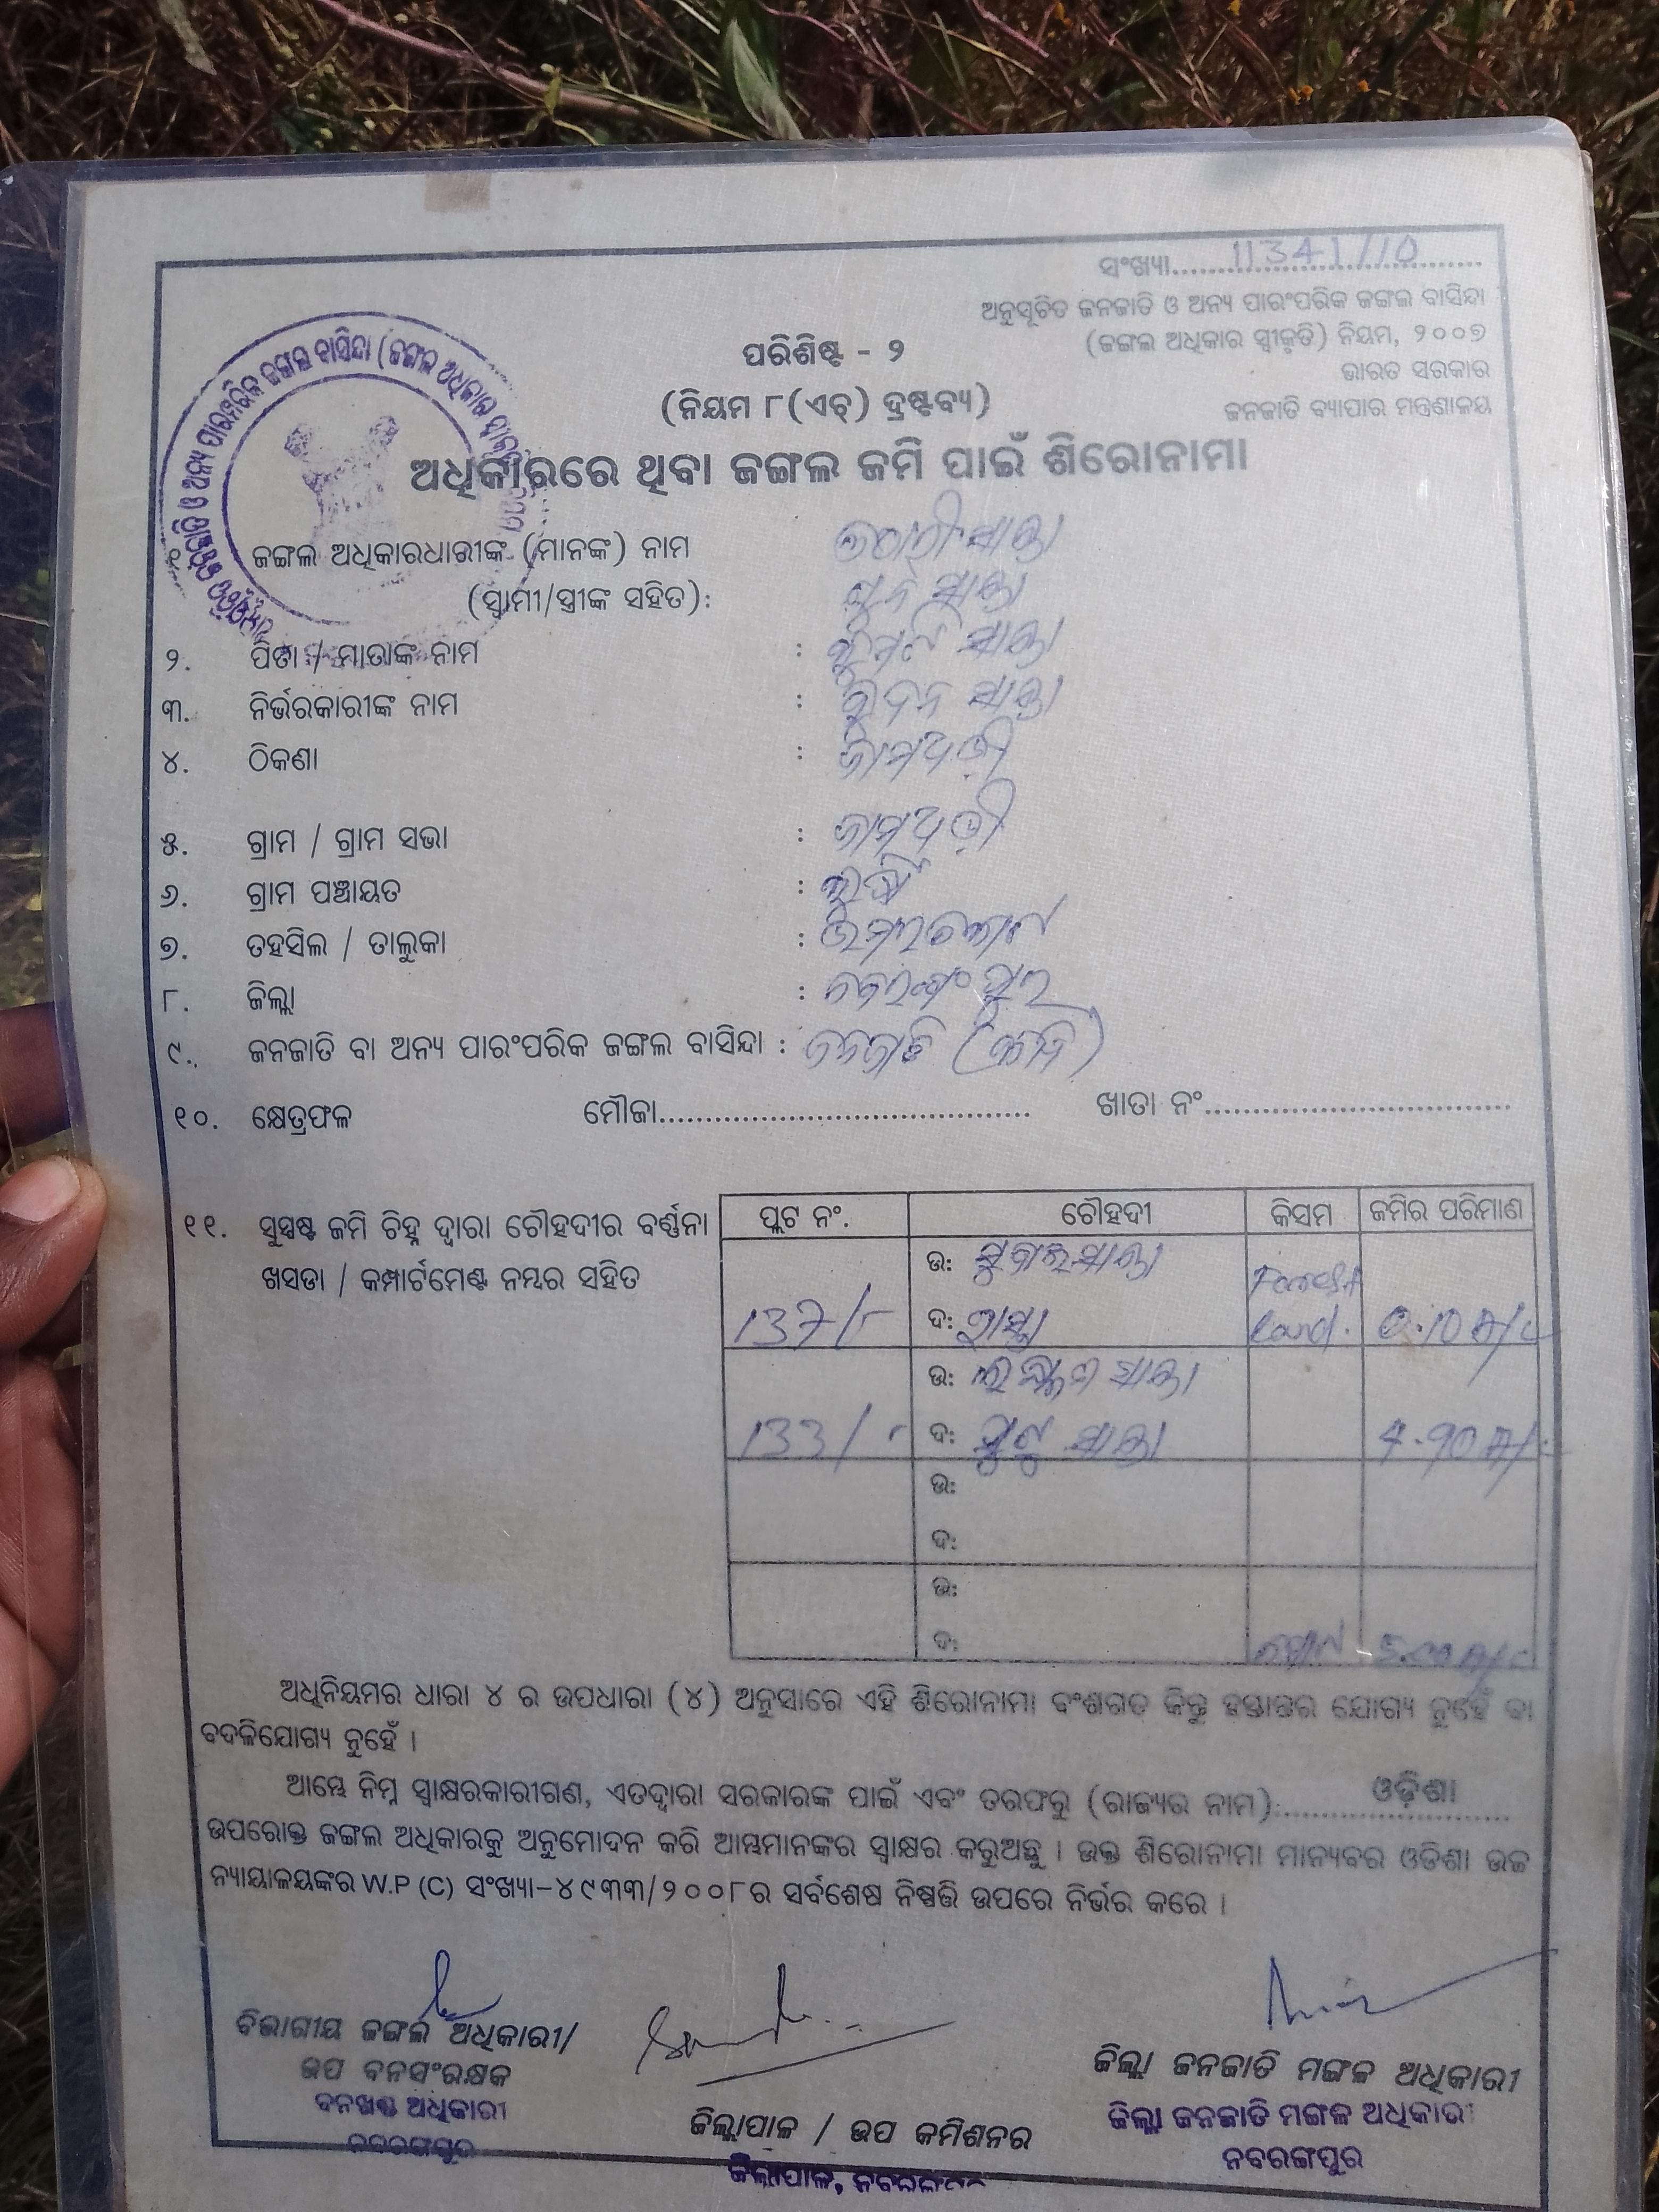 ସଂଖ୍ୟା.......11341/10.......
ଅନୁସୂଚିତ ଜନଜାତି ଓ ଅନ୍ୟ ପାରଂପରିକ ଜଙ୍ଗଲ ବାସିନ୍ଦା
(ଜଙ୍ଗଲ ଅଧିକାର ସ୍ୱୀକୃତି) ନିୟମ, ୨୦୦୭
ଭାରତ ସରକାର
ଜନଜାତି ବ୍ୟାପାର ମନ୍ତ୍ରଣାଳୟ
ପରିଶିଷ୍ଟ - ୨
(ନିୟମ ୮(ଏଚ୍) ଦ୍ରଷ୍ଟବ୍ୟ)
ଅଧିକାରରେ ଥିବା ଜଙ୍ଗଲ ଜମି ପାଇଁ ଶିରୋନାମା
ଓ ଅନ୍ୟ ପାରମ୍ପରିକ ଜଙ୍ଗଲ ବାସିନ୍ଦା (ଜଙ୍ଗଲ ଅଧିକାର
୧ ଜଙ୍ଗଲ ଅଧିକାରଧାରୀଙ୍କ (ମାନଙ୍କ) ନାମ
(ସ୍ୱାମୀ/ସ୍ତ୍ରୀଙ୍କ ସହିତ):
୨. ପିତା / ମାତାଙ୍କ ନାମ :
୩. ନିର୍ଭରକାରୀଙ୍କ ନାମ :
୪. ଠିକଣା :
୫. ଗ୍ରାମ / ଗ୍ରାମ ସଭା :
୬. ଗ୍ରାମ ପଞ୍ଚାୟତ :
୭. ତହସିଲ / ତାଲୁକା : ଉମରକୋଟ
୮. ଜିଲ୍ଲା : ନବରଙ୍ଗପୁର
୯. ଜନଜାତି ବା ଅନ୍ୟ ପାରଂପରିକ ଜଙ୍ଗଲ ବାସିନ୍ଦା : ଜନଜାତି
୧୦. କ୍ଷେତ୍ରଫଳ ମୌଜା.................................... ଖାତା ନଂ................................
୧୧. ସୁସ୍ପଷ୍ଟ ଜମି ଚିହ୍ନ ଦ୍ୱାରା ଚୌହଦୀର ବର୍ଣ୍ଣନା
ଖସଡା / କମ୍ପାର୍ଟମେଣ୍ଟ ନମ୍ବର ସହିତ
ପ୍ଲଟ ନଂ. ଚୌହଦୀ କିସମ ଜମିର ପରିମାଣ
ଉ: Forest
137/ ଦ: ରାସ୍ତା Land. 0.10
ଉ:
133/ ଦ: 4.90
ଉ:
ଦ:
ଉ:
ଦ: ମୋଟ 5.00
ଅଧିନିୟମର ଧାରା ୪ ର ଉପଧାରା (୪) ଅନୁସାରେ ଏହି ଶିରୋନାମା ବଂଶଗତ କିନ୍ତୁ ହସ୍ତାନ୍ତର ଯୋଗ୍ୟ ନୁହେଁ ବା
ବଦଳିଯୋଗ୍ୟ ନୁହେଁ ।
ଆମ୍ଭେ ନିମ୍ନ ସ୍ୱାକ୍ଷରକାରୀଗଣ, ଏତଦ୍ୱାରା ସରକାରଙ୍କ ପାଇଁ ଏବଂ ତରଫରୁ (ରାଜ୍ୟର ନାମ)..........ଓଡ଼ିଶା..........
ଉପରୋକ୍ତ ଜଙ୍ଗଲ ଅଧିକାରକୁ ଅନୁମୋଦନ କରି ଆମ୍ଭମାନଙ୍କର ସ୍ୱାକ୍ଷର କରୁଅଛୁ । ଉକ୍ତ ଶିରୋନାମା ମାନ୍ୟବର ଓଡିଶା ଉଚ୍ଚ
ନ୍ୟାୟାଳୟଙ୍କର W.P (C) ସଂଖ୍ୟା-୪୯୩୩/୨୦୦୮ର ସର୍ବଶେଷ ନିଷ୍ପତ୍ତି ଉପରେ ନିର୍ଭର କରେ ।
ବିଭାଗୀୟ ଜଙ୍ଗଲ ଅଧିକାରୀ/
ଉପ ବନସଂରକ୍ଷକ
ବନଖଣ୍ଡ ଅଧିକାରୀ
ନବରଙ୍ଗପୁର
ଜିଲ୍ଲାପାଳ / ଉପ କମିଶନର
ଜିଲ୍ଲାପାଳ, ନବରଙ୍ଗପୁର
ଜିଲ୍ଲା ଜନଜାତି ମଙ୍ଗଳ ଅଧିକାରୀ
ଜିଲ୍ଲା ଜନଜାତି ମଙ୍ଗଳ ଅଧିକାରୀ
ନବରଙ୍ଗପୁର